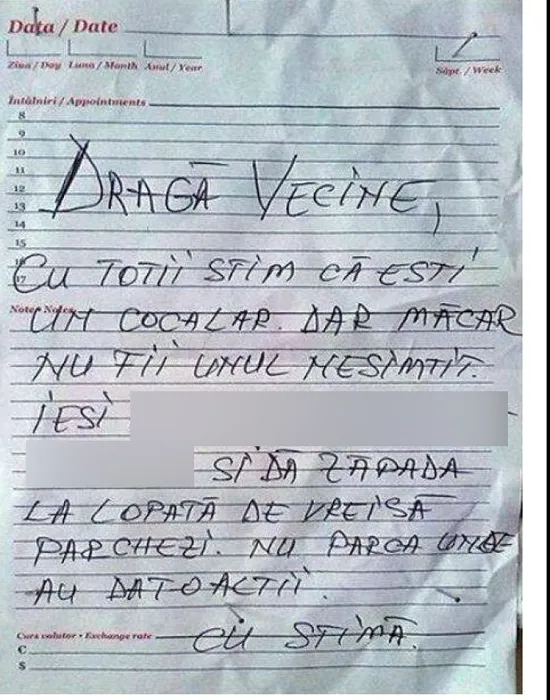 Data / Date
Ziua / Day Luna / Month Anul / Year
Săpt. / Week
Întâlniri / Appointments
8
9
10
11
12
13
14
15
16
17
DRAGĂ VECINE,
CU TOTII STIM CĂ ESTI
Note / Notes
UN COCALAR. DAR MĂCAR
NU FII UNUL NESIMTIT.
IESI
SI DĂ ZĂPADA
LA LOPATĂ DE VREI SĂ
PARCHEZI. NU PARCA UNDE
AU DAT-O ACTII.
Curs valutar • Exchange rate
CU STIMĂ.
€
$